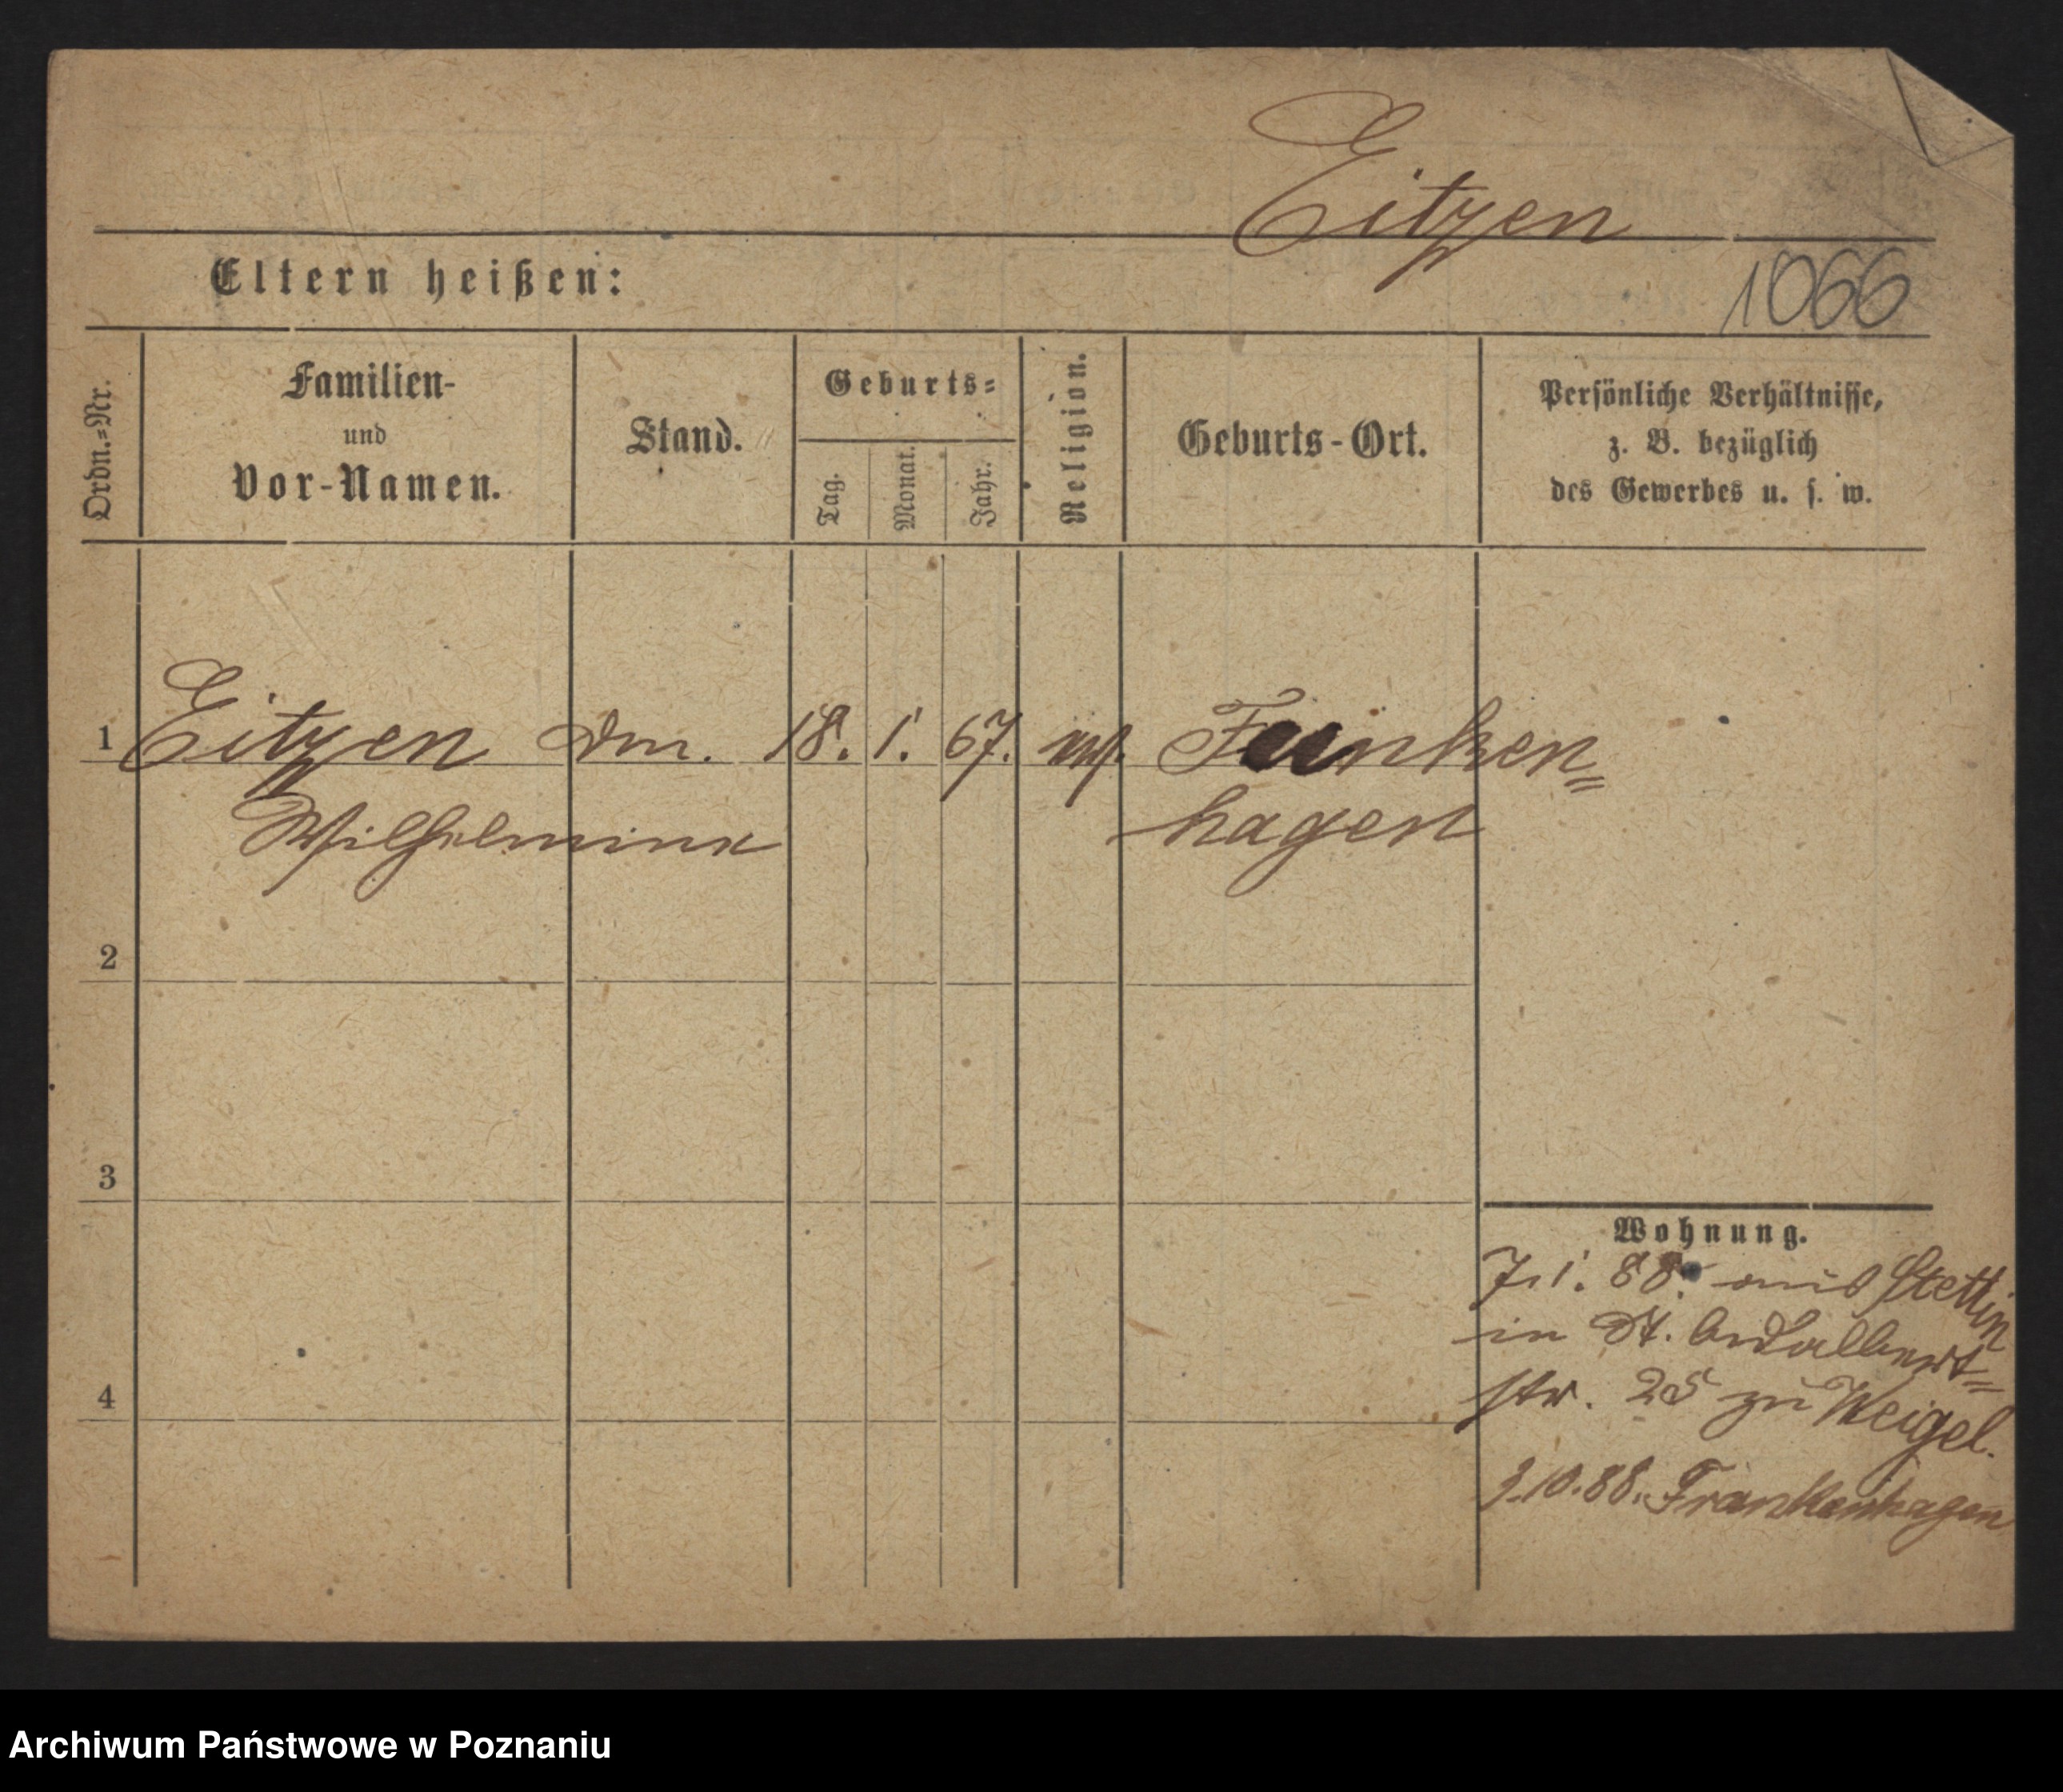 Eitzen
Eltern heißen:
1066
Ordn.=Nr.
Familien-
und
Vor-Namen.
Stand.
Geburts=
Tag.
Monat.
Jahr.
Religion.
Geburts-Ort.
Persönliche Verhältnisse,
z. B. bezüglich
des Gewerbes u. s. w.
1 Eitzen 18. 1. 67. Franken=
Wilhelmine hagen
2
3
4
Wohnung.
7. 1. 88. aus Stettin
in St. Adalbert=
str. 25 zu Weigel.
3.10.88. Frankenhagen
Archiwum Państwowe w Poznaniu